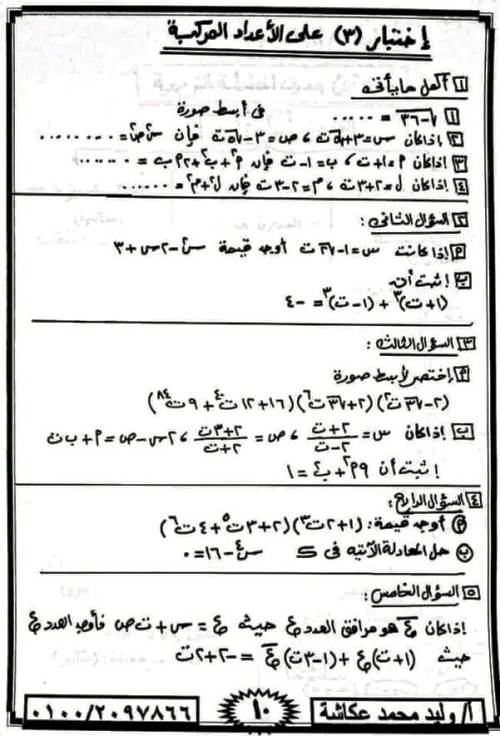 إختبار (٣) على الأعداد المركبة
١ أكمل ما يأتى
١ √-٣٦ = ..... فى أبسط صورة
٢ إذا كان س = ٣+√٥ت ، ص = ٣-√٥ت فإن س٢ص٢ = ........
٣ إذا كان م = ١+ت ، ب = ١-ت فإن م٢+ب٢+٢م ب = ......
٤ إذا كان ل = ٢+٣ت ، م = ٢-٣ت فإن ل٢+م٢ = ......
٢ السؤال الثانى :
م إذا كانت س = ١-√٢ت أوجد قيمة س٢-٢س+٣
ب إثبت أنه
(١+ت)٣ + (١-ت)٣ = -٤
٣ السؤال الثالث :
م إختصر لأبسط صورة
(٢-√٣ت٢)(٢+√٣ت٦)(١٦+١٢ت٤٠+٩ت٨٤)
ب إذا كان س = ٢+ت/٢-ت ، ص = ٢+٣ت/٢+ت ، ٢س-ص = م+ب ت
إثبت أن ٩م٢+ب٤ = ١
٤ السؤال الرابع :
م أوجد قيمة : (١+٢ت٣)(٢+٣ت٥+٤ت٦)
ب حل المعادلة الآتية فى ك س٤-١٦=٠
٥ السؤال الخامس :
إذا كان ع هو مرافق العدد ع حيث ع = س+ت ص فأوجد العدد ع
حيث (١+ت)ع+(١-٣ت)ع = -٢+٢ت
أ/ وليد محمد عكاشة
١٠
٠١٠٠/٢٠٩٧٨٦٦